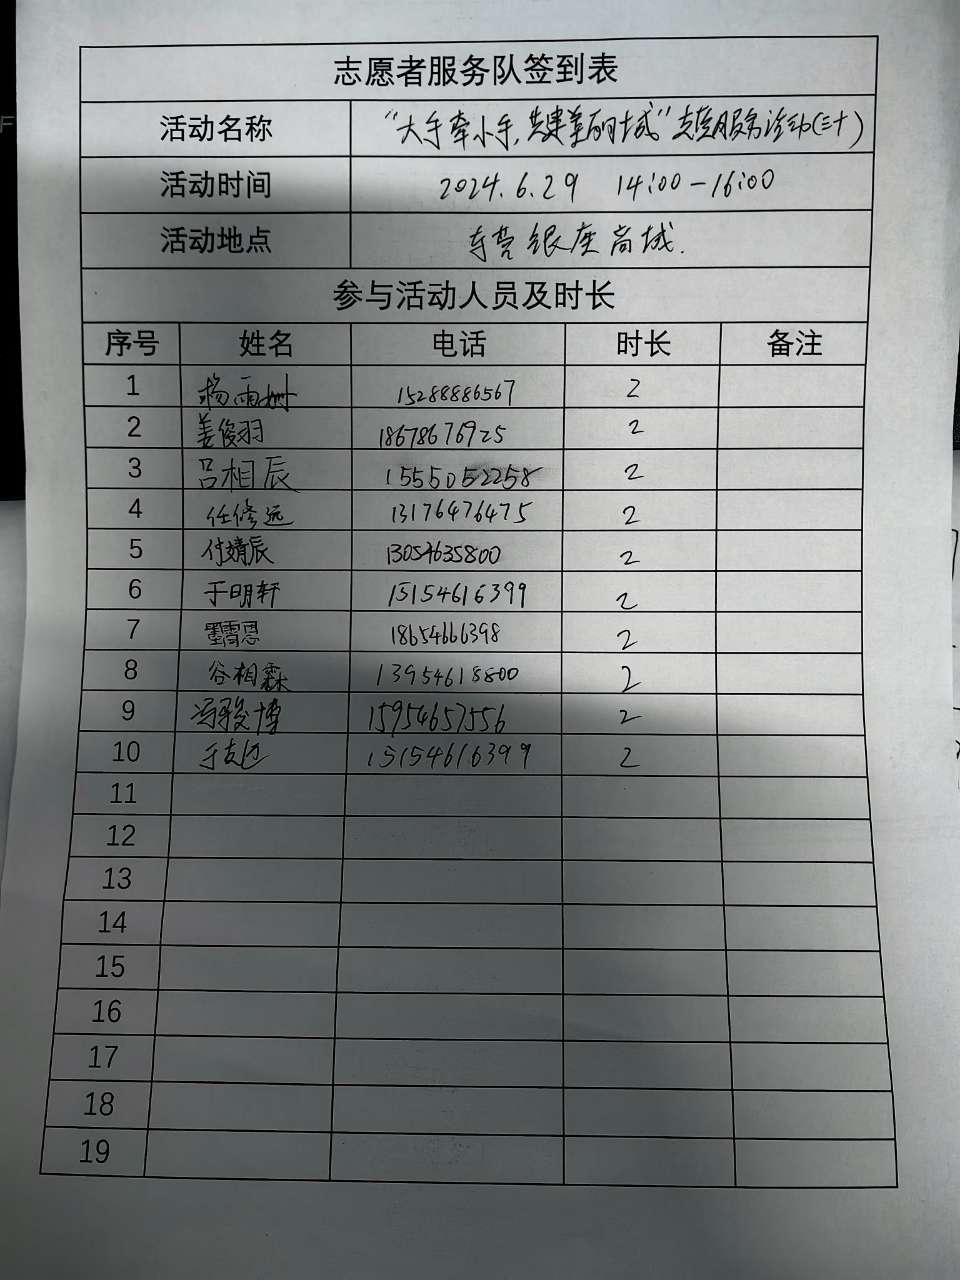 志愿者服务队签到表
活动名称 “大手牵小手,共建美丽城”志愿服务活动(三十)
活动时间 2024.6.29 14:00-16:00
活动地点 东营银座商城.
参与活动人员及时长
序号 姓名 电话 时长 备注
1 杨雨姗 15288886567 2
2 姜俊羽 18678676925 2
3 吕相辰 15550522258 2
4 任修远 13176476475 2
5 付婧辰 13054635800 2
6 于明轩 15154616399 2
7 18654666398 2
8 谷相霖 13954618800 2
9 冯骏博 15954657556 2
10 于志边 15154616399 2
11
12
13
14
15
16
17
18
19